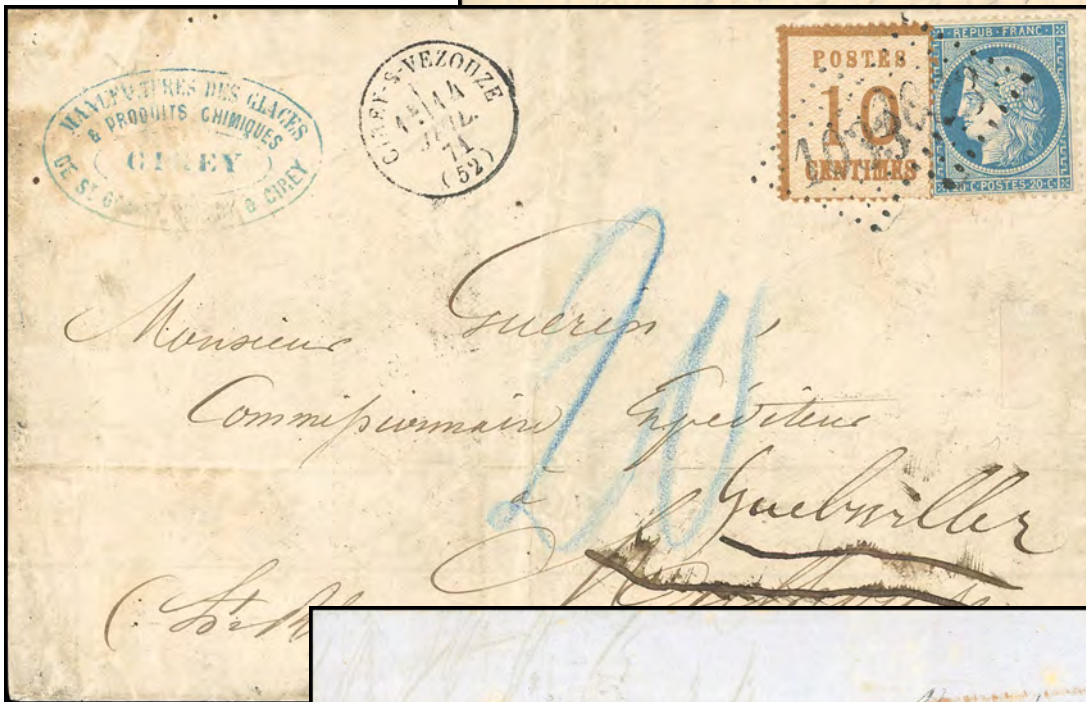 MANUFACTURES DES GLACES
& PRODUITS CHIMIQUES
CIREY
DE ST & CIREY
CIREY-S-VEZOUZE
14
JUIL.
71
(52)
POSTES
10
CENTIMES
REPUB·FRANC·
20·C·POSTES·20·C·
Monsieur Guérin
Commissionnaire Expéditeur
à Guebwiller
20